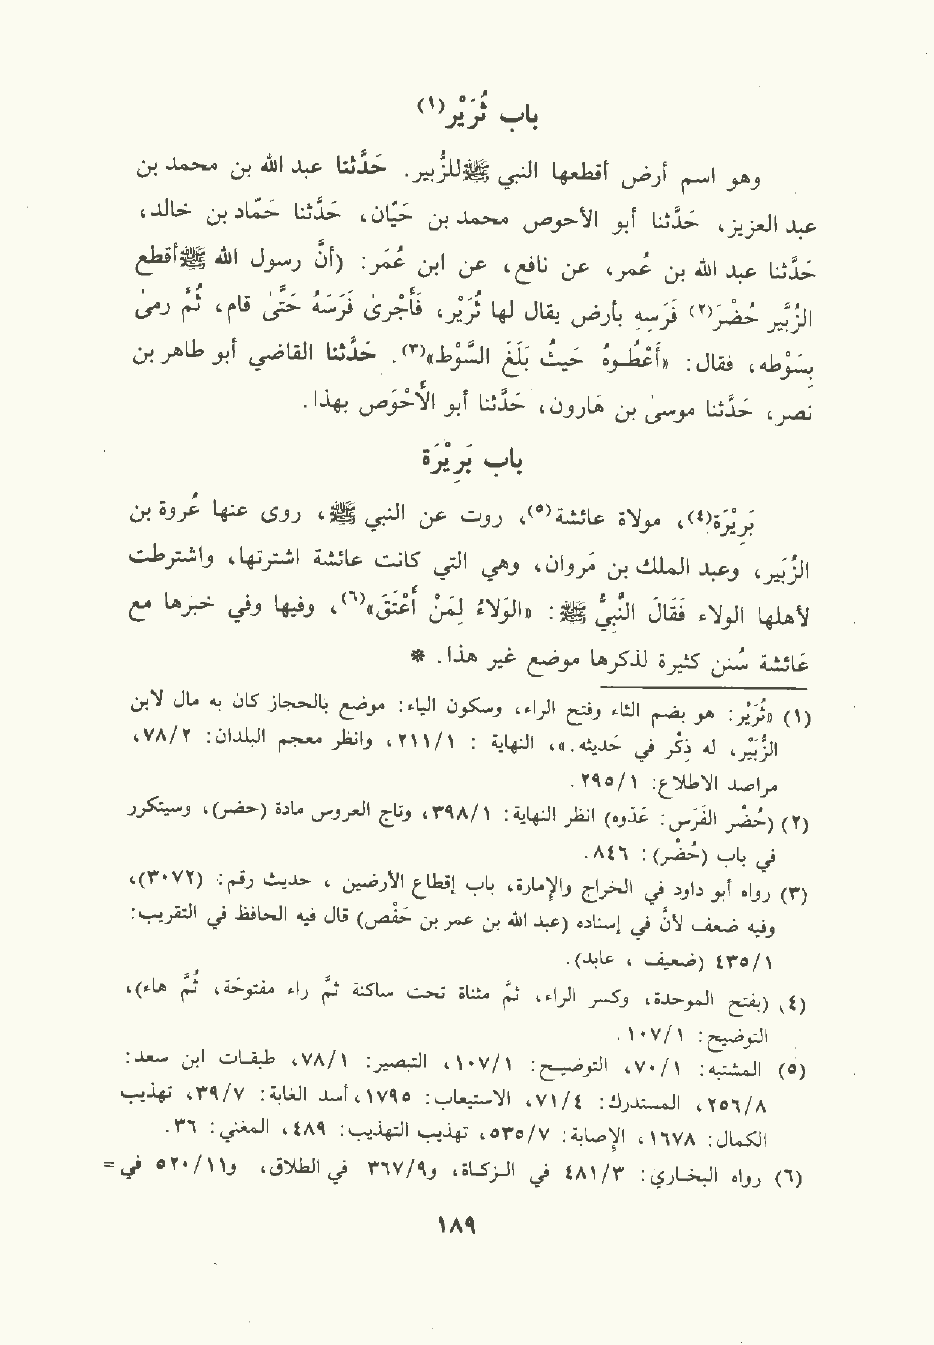 باب ثُرَيْر(١)
وهو اسم أرض أقطعها النبي ﷺللزُّبير. حَدَّثنا عبد الله بن محمد بن
عبد العزيز، حَدَّثنا أبو الأحوص محمد بن حَيَّان، حَدَّثنا حَمَّاد بن خالد،
حَدَّثنا عبد الله بن عُمر، عن نافع، عن ابن عُمَر: (أنَّ رسول الله ﷺأقطع
الزُّبَير حُضْرَ(٢) فَرَسِهِ بأرض يقال لها ثُرَيْر، فَأَجْرَى فَرَسَهُ حَتَّى قام، ثُمَّ رمىٰ
بِسَوْطه، فقال: «أَعْطُـوهُ حَيثُ بَلَغَ السَّوْط»(٣). حَدَّثنا القاضي أبو طاهر بن
نصر، حَدَّثنا موسىٰ بن هَارون، حَدَّثنا أبو الأَحْوَص بهذا.
باب بَرِيْرَة
بَرِيْرَة(٤)، مولاة عائشة(٥)، روت عن النبي ﷺ، روى عنها عُروة بن
الزُّبَير، وعبد الملك بن مَروان، وهي التي كانت عائشة اشترتها، واشترطت
لأهلها الولاء فَقَالَ النَّبيُّ ﷺ: «الوَلاَءُ لِمَنْ أَعْتَقَ»(٦)، وفيها وفي خبرها مع
عَائشة سُنن كثيرة لذكرها موضع غير هذا. *
(١) «ثُرَيْر: هو بضم الثاء وفتح الراء، وسكون الياء: موضع بالحجاز كان به مال لابن
الزُّبَيْر، له ذِكْر في حَديثه.»، النهاية : ٢١١/١، وانظر معجم البلدان: ٧٨/٢،
مراصد الاطلاع: ٢٩٥/١.
(٢) (حُضْر الفَرَس: عَدْوه) انظر النهاية: ٣٩٨/١، وتاج العروس مادة (حضر)، وسيتكرر
في باب (حُضْر): ٨٤٦.
(٣) رواه أبو داود في الخراج والإمارة، باب إقطاع الأرضين ، حديث رقم: (٣٠٧٢)،
وفيه ضعف لأنَّ في إسناده (عبد الله بن عمر بن حَفْص) قال فيه الحافظ في التقريب:
٤٣٥/١ (ضعيف ، عابد).
(٤) (بفتح الموحدة، وكسر الراء، ثمَّ مثناة تحت ساكنة ثمَّ راء مفتوحَة، ثُمَّ هاء)،
التوضيح: ١٠٧/١.
(٥) المشتبه: ٧٠/١، التوضيح: ١٠٧/١، التبصير: ٧٨/١، طبقات ابن سعد:
٢٥٦/٨، المستدرك: ٧١/٤، الاستيعاب: ١٧٩٥، أسد الغابة: ٣٩/٧، تهذيب
الكمال: ١٦٧٨، الإصابة: ٥٣٥/٧، تهذيب التهذيب: ٤٨٩، المغني: ٣٦.
(٦) رواه البخاري: ٤٨١/٣ في الزكاة، و٣٦٧/٩ في الطلاق، و٥٢٠/١١ في =
١٨٩